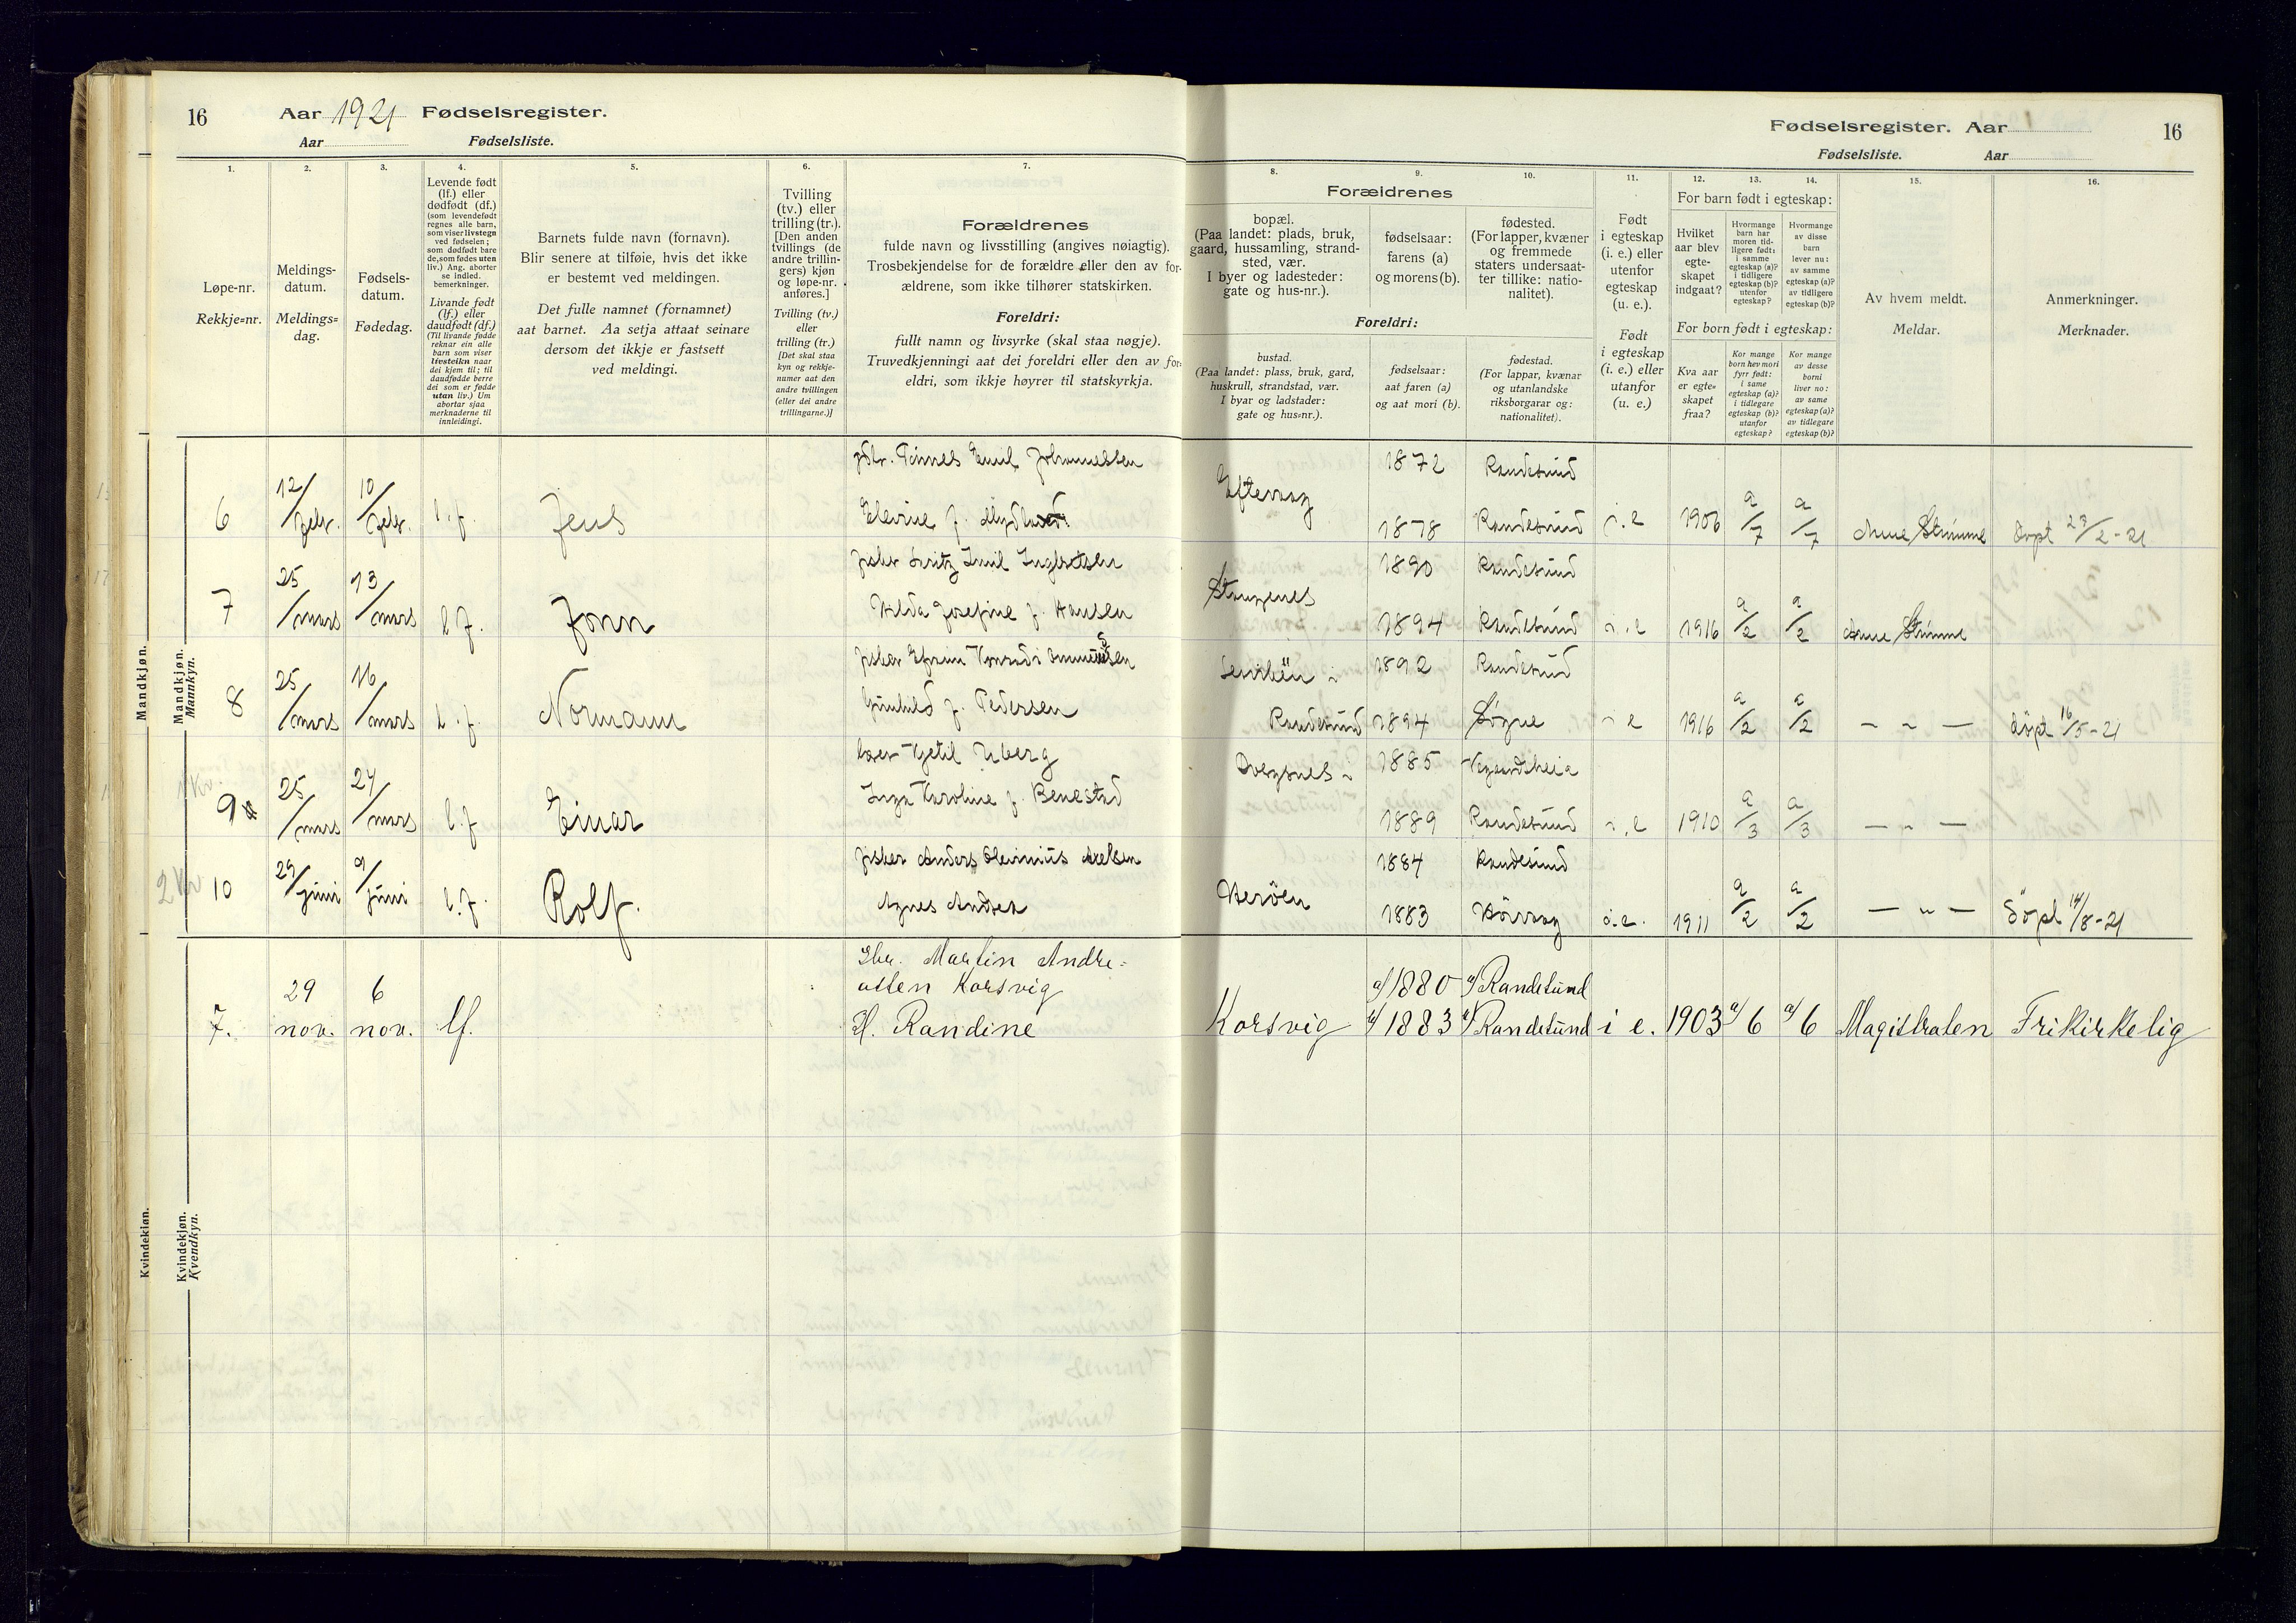 16 Aar 1921 Fødselsregister.
Aar Fødselsliste.
Fødselsregister. Aar 16
Fødselsliste. Aar
1. 2. 3. 4. 5. 6. 7. 8. 9. 10. 11. 12. 13. 14. 15. 16.
Løpe-nr.
Rekkje=nr.
Meldings-
datum.
Meldings=
dag.
Fødsels-
datum.
Fødedag.
Levende født
(lf.) eller
dødfødt (df.)
(som levendefødt
regnes alle barn,
som viser livstegn
ved fødselen;
som dødfødt bare
de, som fødes uten
liv.) Ang. aborter
se indled.
bemerkninger.
Livande født
(lf.) eller
daudfødt (df.)
(Til livande fødde
reknar ein alle
barn som viser
livsteikn naar
dei kjem til; til
daudfødde berre
dei som er fødde
utan liv.) Um
abortar sjaa
merknaderne til
innleidingi.
Barnets fulde navn (fornavn).
Blir senere at tilføie, hvis det ikke
er bestemt ved meldingen.
Det fulle namnet (fornamnet)
aat barnet. Aa setja attaat seinare
dersom det ikkje er fastsett
ved meldingi.
Tvilling
(tv.) eller
trilling (tr.).
[Den anden
tvillings (de
andre trillin-
gers) kjøn
og løpe-nr.
anføres.]
Tvilling (tv.)
eller
trilling (tr.)
[Det skal staa
kyn og rekkje-
numer aat den
andre tvillingen
(eller dei andre
trillingarne.)]
Forældrenes
fulde navn og livsstilling (angives nøiagtig).
Trosbekjendelse for de forældre eller den av for-
ældrene, som ikke tilhører statskirken.
Foreldri:
fullt namn og livsyrke (skal staa nøgje).
Truvedkjenningi aat dei foreldri eller den av for-
eldri, som ikkje høyrer til statskyrkja.
Forældrenes
bopæl.
(Paa landet: plads, bruk,
gaard, hussamling, strand-
sted, vær.
I byer og ladesteder:
gate og hus-nr.).
fødselsaar:
farens (a)
og morens (b).
fødested.
(For lapper, kvæner
og fremmede
staters undersaat-
ter tillike: natio-
nalitet).
Foreldri:
bustad.
(Paa landet: plass, bruk, gard,
huskrull, strandstad, vær.
I byar og ladstader:
gate og hus=nr.).
fødselsaar:
aat faren (a)
og aat mori (b).
fødestad.
(For lappar, kvænar
og utanlandske
riksborgarar og:
nationalitet).
Født
i egteskap
(i. e.) eller
utenfor
egteskap
(u. e.).
Født
i egteskap
(i. e.) eller
utanfor
(u. e.)
For barn født i egteskap:
Hvilket
aar blev
egte-
skapet
indgaat?
Hvormange
barn har
moren tid-
ligere født:
i samme
egteskap (a)?
i tidligere
egteskap (b)?
utenfor
egteskap?
Hvormange
av disse
barn
lever nu:
av samme
egteskap (a)?
av tidligere
egteskap (b)?
For born født i egteskap:
Kva aar
er egte=
skapet
fraa?
Kor mange
born hev mori
fyrr født:
i same
egteskap (a)?
i tidlegare
egteskap (b)?
utanfor
egteskap?
Kor mange
av desse
borni
liver no:
av same
egteskap (a)?
av tidlegare
egteskap (b)?
Av hvem meldt.
Meldar.
Anmerkninger.
Merknader.
Mandkjøn.
Mandkjøn.
Mannkyn.
Tønnes Emil Johannessen 1872 Randesund
6 12/febr. 10/febr. l.f. Jens Elevine f. Eftevaag 1878 Randesund i.e 1906 a/7 a/7 Anne Strømme Døpt 27/2-21
fisker Emil Ingbretsen 1890 Randesund
7 25/mars 13/mars l f. John Hilda Josefine f. Hansen Stangenes 1894 Randesund i.e 1916 a/2 a/2 Anne Strømme
fisker Efraim Konrad 1892 Randesund
8 25/mars 16/mars l.f. Normann Gunhild f. Pedersen Randesund 1894 Søgne i e 1916 a/2 a/2 — " — døpt 16/5-21
Kjetil Uberg Dvergsnes 1885 Vegaardsheia
9 25/mars 24/mars l.f Einar Inga Karoline f. Benestad 1889 Randesund i.e 1910 a/3 a/3 — " —
fisker Anders Axelsen 1884 Randesund
2 Kv 10 29/juni 9/juni l.f. Rolf. Agnes Andrea Herøen 1883 Vaagsvaag i.e. 1911 a/2 a/2 — " — Døpt 14/8-21
Kvindekjøn.
Kvindekjøn.
Kvendkyn.
Gbr. Martin Andre-
assen Korsvig a/ 1880 a/ Randesund
7. 29 nov. 6 nov. lf. H. Randine Korsvig b/ 1883 b/ Randesund i e. 1903 a/ 6 a/ 6 Magistraten Frikirkelig